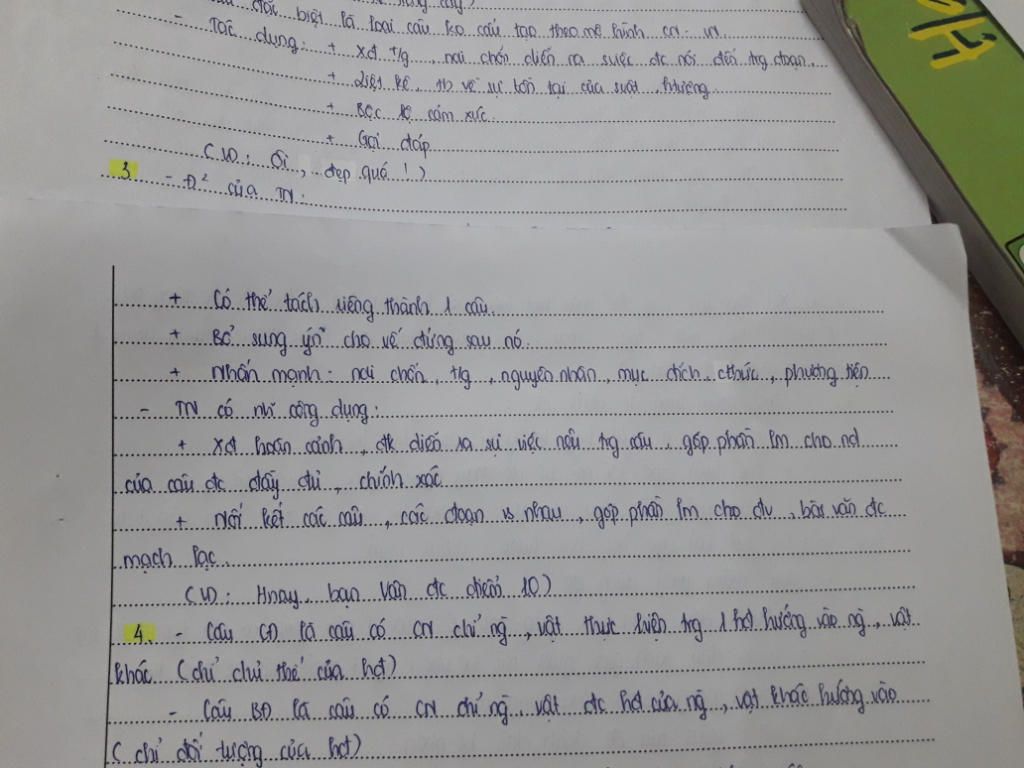 đặc biệt là loại câu ko cấu tạo theo mô hình CN - VN
- Tác dụng: + Xđ t/g, nơi chốn diễn ra sự việc đc nói đến trg đoạn.
+ Liệt kê, tb về sự tồn tại của svật, htượng
+ Bộc lộ cảm xúc.
+ Gọi đáp
(VD: Ôi, đẹp quá!)
3 - Đ² của TN:
+ Có thể tách riêng thành 1 câu.
+ Bổ sung ý cho vế đứng sau nó.
+ Nhấn mạnh: nơi chốn, t/g, nguyên nhân, mục đích, cthức, phương tiện
- TN có nh~ công dụng:
+ Xđ hoàn cảnh, đk diễn ra sự việc nêu trg câu, góp phần lm cho nd
của câu đc đầy đủ, chính xác
+ Nối kết các câu, các đoạn vs nhau, góp phần lm cho đv, bài văn đc
mạch lạc.
(VD: Hnay, bạn Vân đc điểm 10)
4. - Câu CĐ là câu có CN chỉ ng~, vật thực hiện trg 1 hđ hướng vào ng~, vật
khác (chỉ chủ thể của hđ)
- Câu BĐ là câu có CN chỉ ng~, vật đc hđ của ng~, vật khác hướng vào
(chỉ đối tượng của hđ)